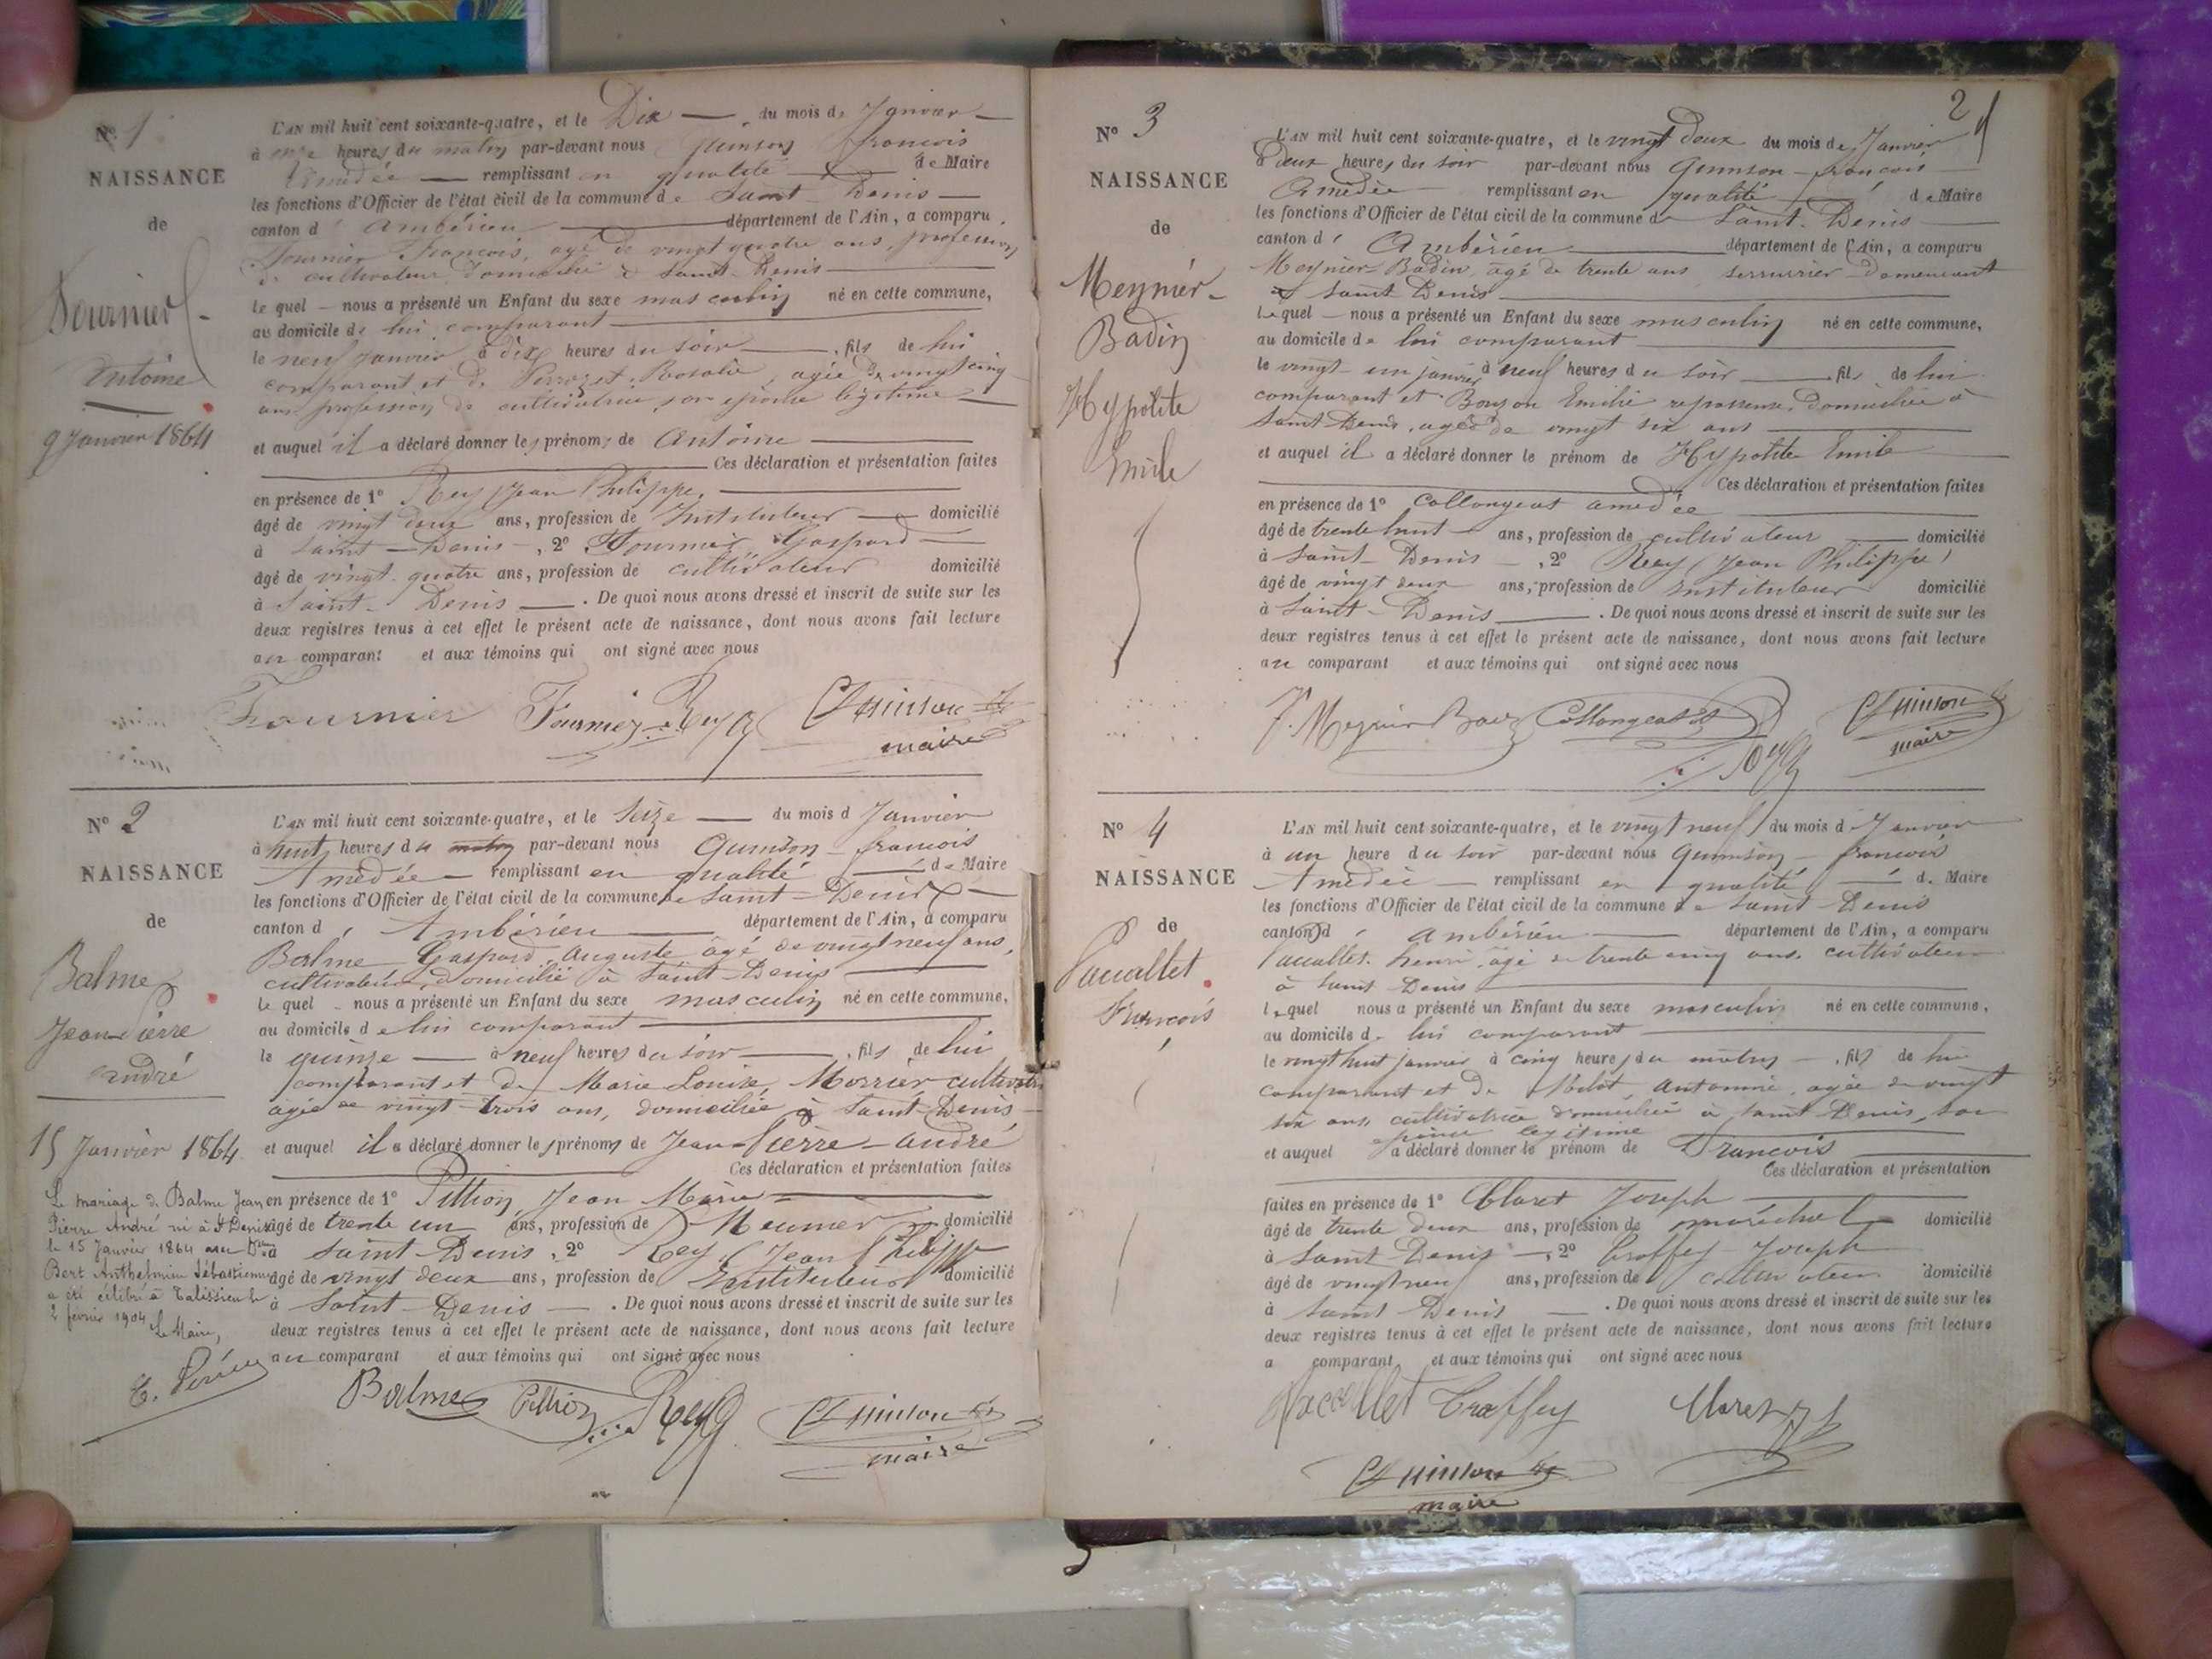 Nº 1
NAISSANCE
de
Fournier
Antoine
9 Janvier 1864
L'AN mil huit cent soixante-quatre, et le Dix du mois de Janvier
à onze heures du matin par-devant nous Quinson françois
Amédée remplissant en qualité de Maire
les fonctions d'Officier de l'état civil de la commune de Saint Denis
canton d'Ambérieu département de l'Ain, a comparu
Fournier François, agé de vingt quatre ans, profession
de cultivateur domicilié à Saint-Denis
lequel nous a présenté un Enfant du sexe masculin né en cette commune,
au domicile de lui comparant
le neuf Janvier à dix heures du soir, fils de lui
comparant et de Perrozet Rosalie, agée de vingt cinq
ans profession de cultivatrice son épouse légitime
et auquel il a déclaré donner les prénoms de Antoine
Ces déclaration et présentation faites
en présence de 1º Rey Jean Philippe,
âgé de vingt deux ans, profession de Instituteur domicilié
à Saint-Denis, 2º Fournier Gaspard
âgé de vingt-quatre ans, profession de cultivateur domicilié
à Saint-Denis. De quoi nous avons dressé et inscrit de suite sur les
deux registres tenus à cet effet le présent acte de naissance, dont nous avons fait lecture
au comparant et aux témoins qui ont signé avec nous
Fournier Fournier Rey Quinson
maire
Nº 2
NAISSANCE
de
Balme
Jean Pierre
André
15 Janvier 1864
Le mariage de Balme Jean
Pierre André né à St Denis
le 15 Janvier 1864 avec
Bert Anthelmine Sébastienne
a été célébré à Talissieu le
2 février 1904
Le Maire,
L'AN mil huit cent soixante-quatre, et le Seize du mois d Janvier
à huit heures du matin par-devant nous Quinson françois
Amédée remplissant en qualité de Maire
les fonctions d'Officier de l'état civil de la commune de Saint-Denis
canton d'Ambérieu département de l'Ain, a comparu
Balme Gaspard Auguste âgé de vingt neuf ans,
cultivateur, domicilié à Saint-Denis
lequel nous a présenté un Enfant du sexe masculin né en cette commune,
au domicile de lui comparant
le quinze à neuf heures du soir, fils de lui
comparant et de Marie Louise, Morrier
agée de vingt-trois ans, domiciliée à Saint-Denis
et auquel il a déclaré donner les prénoms de Jean-Pierre-André
Ces déclaration et présentation faites
en présence de 1º Pillion Jean Marie
âgé de trente un ans, profession de Meunier domicilié
à Saint-Denis, 2º Rey Jean Philippe
âgé de vingt deux ans, profession de Instituteur domicilié
à Saint-Denis. De quoi nous avons dressé et inscrit de suite sur les
deux registres tenus à cet effet le présent acte de naissance, dont nous avons fait lecture
au comparant et aux témoins qui ont signé avec nous
Balme Pillion Rey Quinson
maire
2
Nº 3
NAISSANCE
de
Meynier-
Badin
Hypolite
Emile
L'AN mil huit cent soixante-quatre, et le vingt deux du mois de Janvier
à Deux heures du soir par-devant nous Quinson françois
Amédée remplissant en qualité de Maire
les fonctions d'Officier de l'état civil de la commune de Saint-Denis
canton d'Ambérieu département de l'Ain, a comparu
Meynier-Badin, agé de trente ans, serrurier demeurant
à Saint Denis
lequel nous a présenté un Enfant du sexe masculin né en cette commune,
au domicile de lui comparant
le vingt-un janvier à neuf heures du soir, fils de lui
comparant et Bouzon Emilie repasseuse, domiciliée à
Saint Denis, agée de vingt six ans
et auquel il a déclaré donner le prénom de Hypolite Emile
Ces déclaration et présentation faites
en présence de 1º Collongeat amédée
âgé de trente huit ans, profession de cultivateur domicilié
à Saint-Denis, 2º Rey Jean Philippe
âgé de vingt deux ans, profession de Instituteur domicilié
à Saint-Denis. De quoi nous avons dressé et inscrit de suite sur les
deux registres tenus à cet effet le présent acte de naissance, dont nous avons fait lecture
au comparant et aux témoins qui ont signé avec nous
Collongeat Rey Quinson
maire
Nº 4
NAISSANCE
de
François
L'AN mil huit cent soixante-quatre, et le vingt neuf du mois d Janvier
à un heure du soir par-devant nous Quinson françois
Amédée remplissant en qualité d. Maire
les fonctions d'Officier de l'état civil de la commune de Saint-Denis
canton d'Ambérieu département de l'Ain, a comparu
henri âgé de trente cinq ans cultivateur
à Saint Denis
lequel nous a présenté un Enfant du sexe masculin né en cette commune,
au domicile de lui comparant
le vingt huit janvier à cinq heures du matin, fils de lui
comparant et de Antoinie, agée de vingt
six ans cultivatrice domiciliée à Saint Denis, son
épouse légitime
et auquel a déclaré donner le prénom de François
Ces déclaration et présentation
faites en présence de 1º Claret Joseph
âgé de trente deux ans, profession de maréchal domicilié
à Saint Denis, 2º Joseph
âgé de vingt neuf ans, profession de cultivateur domicilié
à Saint Denis. De quoi nous avons dressé et inscrit de suite sur les
deux registres tenus à cet effet le présent acte de naissance, dont nous avons fait lecture
a comparant et aux témoins qui ont signé avec nous
Claret
Quinson
maire